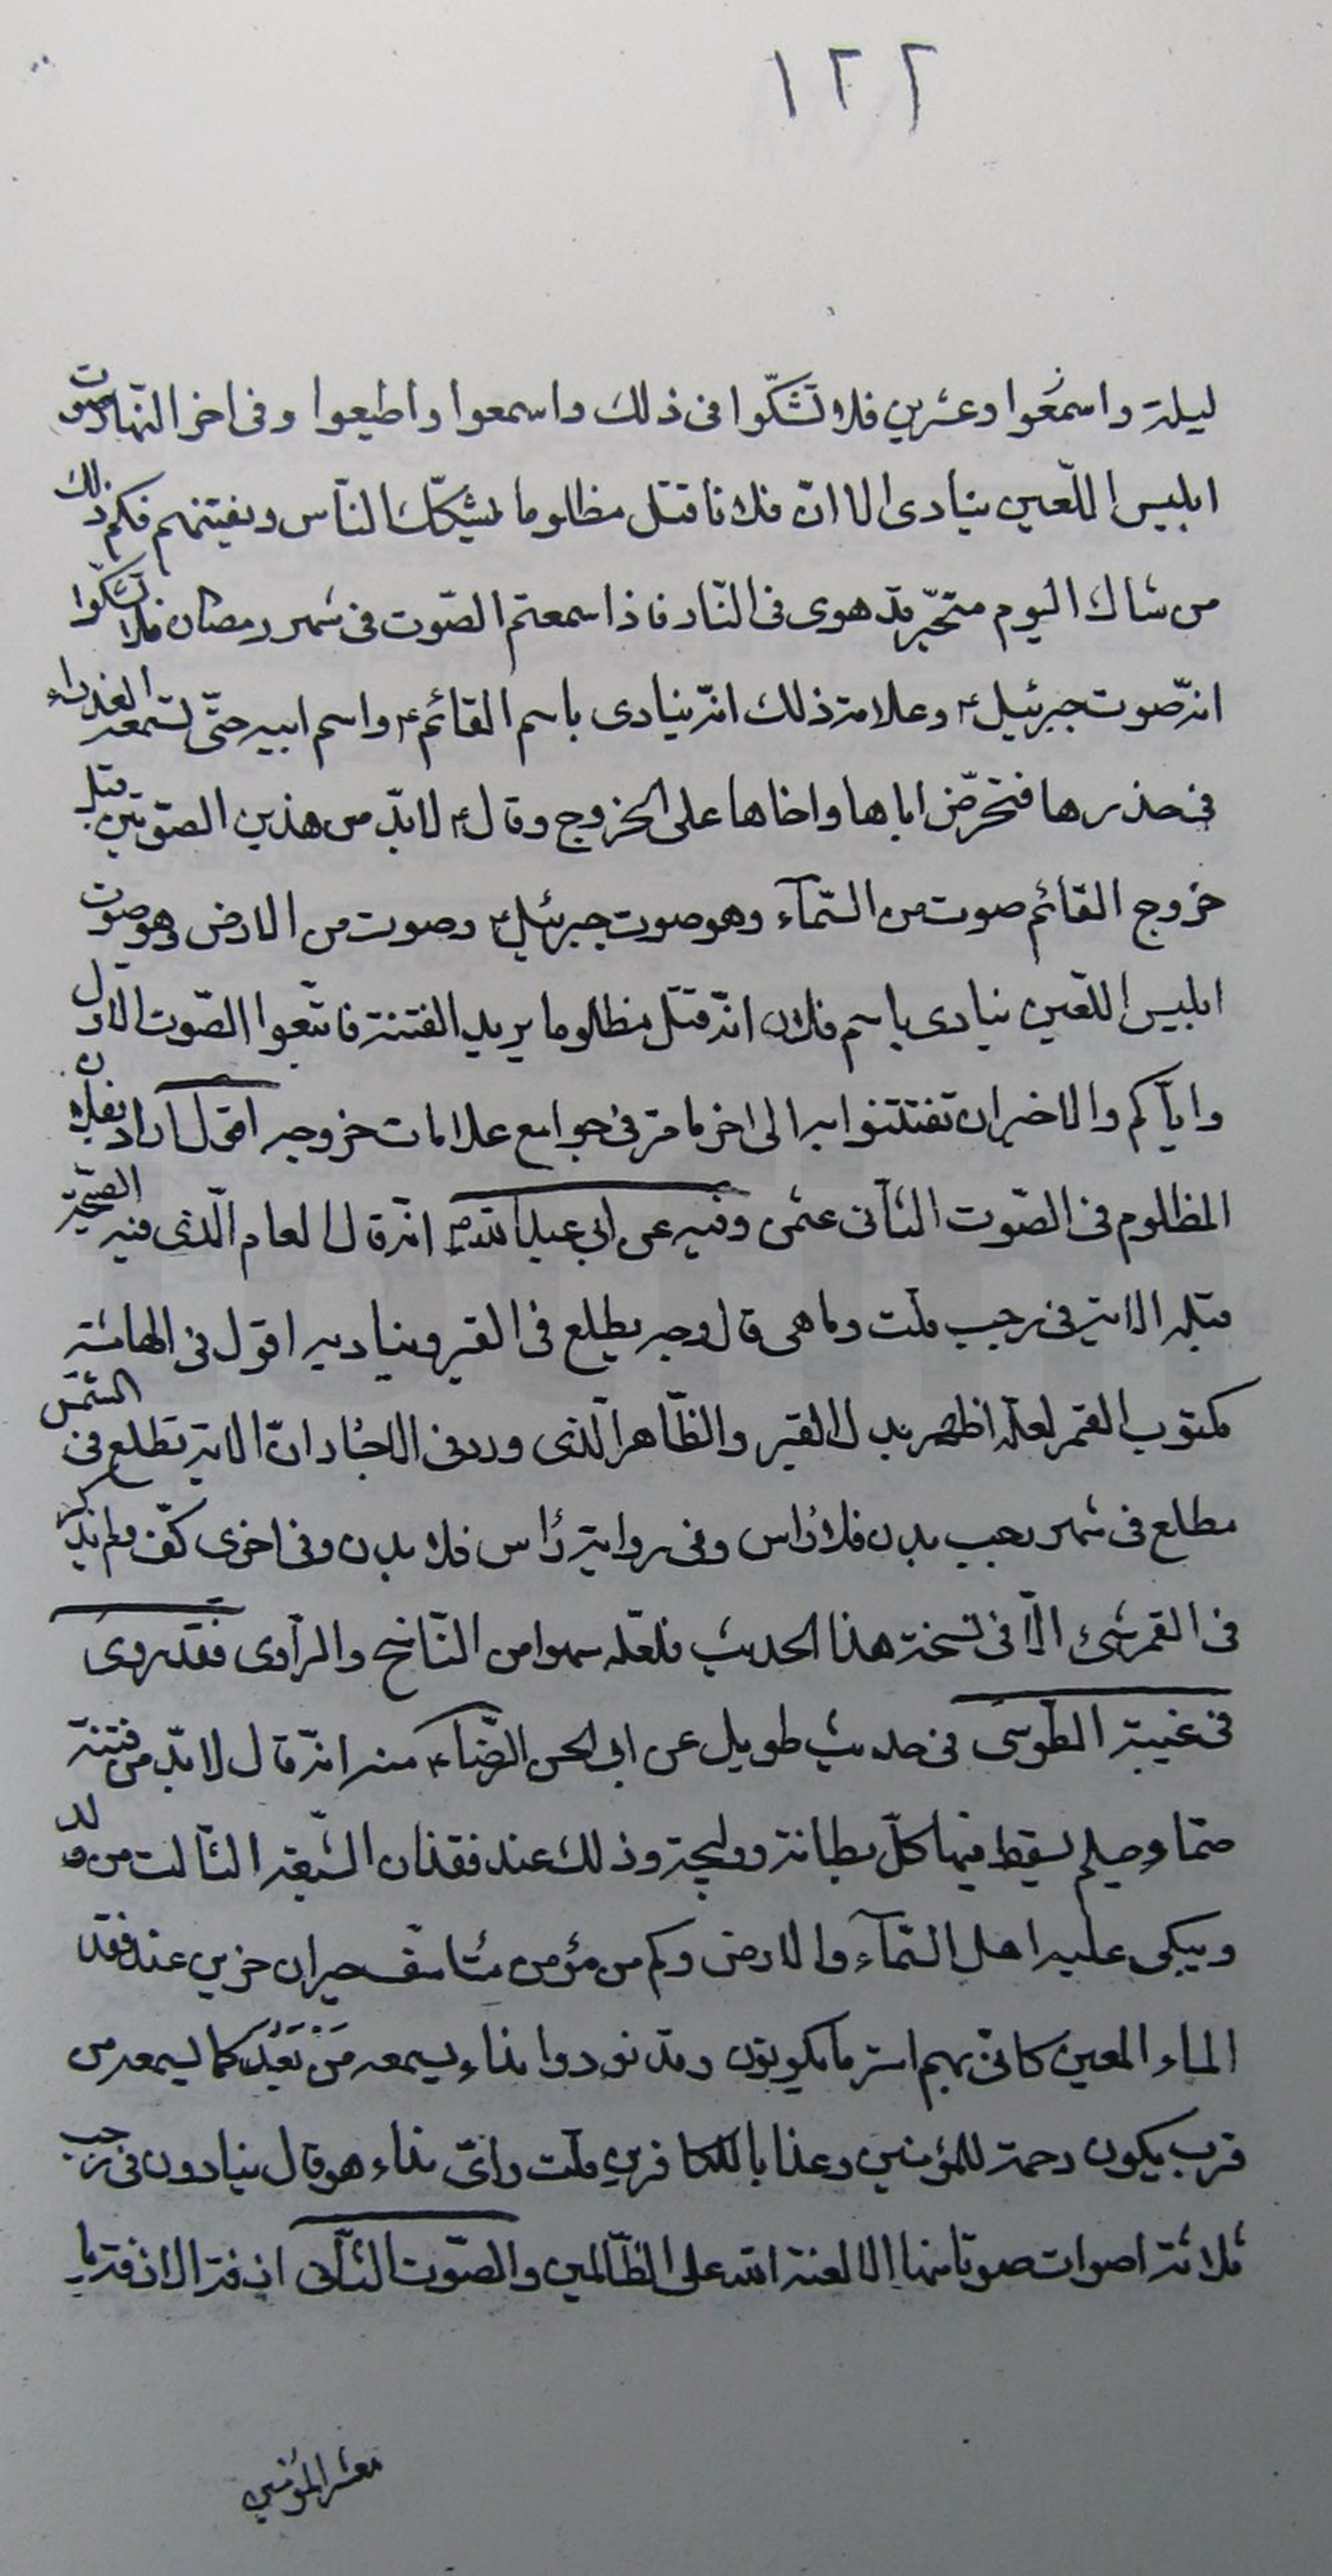 ١٢٢
ليلة واسمعوا وعشرين فلا تشكّوا فى ذلك واسمعوا واطيعوا وفى اخر النهار صوت
ابليس اللّعين ينادى الا انّ فلانا قتل مظلوما ليشكّك النّاس ويفتنهم فكم ذلك
من شاك اليوم متحيّر قد هوى فى النّار فاذا سمعتم الصّوت فى شهر رمضان فلا تشكّوا
انه صوت جبرئيل ع وعلامة ذلك انه ينادى باسم القائم ع واسم ابيه حتّى تسمعه العذراء
فى خدرها فتحرّض اباها واخاها على الخروج وقال ع لابدّ من هذين الصوتين قبل
خروج القائم صوت من السّمآء وهو صوت جبرئيل ع وصوت من الارض وهو صوت
ابليس اللّعين ينادى باسم فلان انه قتل مظلوما يريد الفتنة فاتّبعوا الصّوت الاوّل
وايّاكم والاخير ان تفتتنوا به الى اخر ما مرّ فى جوامع علامات خروجه اقول اراد بفلان
المظلوم فى الصّوت الثانى عثمن وفيه عن ابى عبدالله ع انه قال العام الّذى فيه الصّيحة
قبله الاية فى رجب قلت وما هى قال وجه يطلع فى القبر وينادى به اقول فى الهامش
مكتوب القمر لعلّه اظهر بدل القبر والظّاهر الّذى ورد فى الاخبار انّ الاية تطلع فى الشمس
مطلع فى شهر رجب بدن فلا رأس وفى رواية رأس فلا بدن وفى اخرى كفّ ولم يذكر
فى القمر شىء الّا فى نسخة هذا الحديث فلعلّه سهوا من النّاسخ والرّاوى فقد روى
فى غيبة الطّوسى فى حديث طويل عن ابى الحسن الرّضا ع منه انه قال لابدّ من فتنة
صمّاء صيلم يسقط فيها كلّ بطانة ووليجة وذلك عند فقدان الشّيعة الثّالث من ولد
ويبكى عليه اهل السّمآء والارض وكم من مؤمن متأسّف حيران حزين عند فقد
الماء المعين كانى بهم استر ما يكونون وقد نودوا نداء يسمعه مَن بَعُدَ كما يسمعه من
قرب يكون رحمة للمؤمنين وعذابا للكافرين قلت واىّ نداء هو قال ينادون فى رجب
ثلاثة اصوات صوتا منها الا لعنة الله على الظّالمين والصّوت الثّانى ازفة الازفة يا
معشر المؤمنين